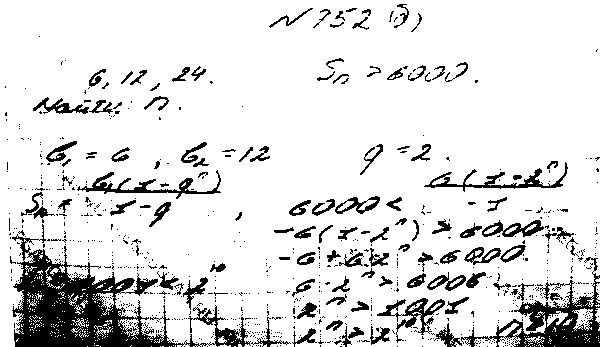 N 752 (д)
6, 12, 24. Sn > 6000.
Найти n.
b₁ = 6, b₂ = 12 q = 2.
Sn = b₁(1-qⁿ) / 1-q , 6000 < 6(1-2ⁿ) / -1
-6(1-2ⁿ) > 6000
-6+6·2ⁿ > 6000.
6·2ⁿ > 6006
2ⁿ > 1001.